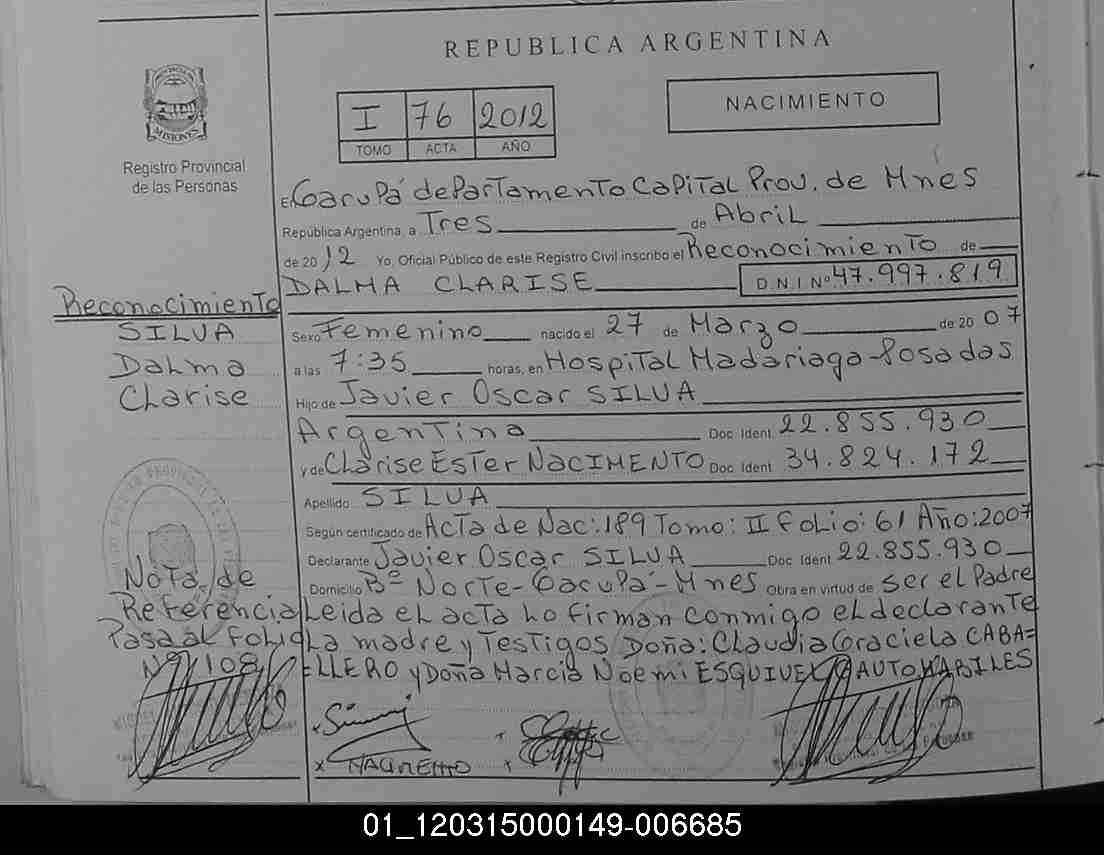 REPUBLICA ARGENTINA
PROVINCIA DE
MISIONES
Registro Provincial
de las Personas
I 76 2012
TOMO ACTA AÑO
NACIMIENTO
En Garupá departamento Capital Prov. de Mnes
República Argentina, a Tres de Abril
de 2012 Yo, Oficial Público de este Registro Civil inscribo el Reconocimiento de
DALMA CLARISE D.N.I Nº 47.997.819
Reconocimiento
SILVA
Dalma
Clarise
Sexo Femenino nacido el 27 de Marzo de 2007
a las 7:35 horas, en Hospital Madariaga-Posadas
Hijo de Javier Oscar SILVA
Argentina Doc Ident 22.855.930
y de Clarise Ester NACIMENTO Doc Ident 34.824.172
Apellido SILVA
Según certificado de Acta de Nac: 189 Tomo: II Folio: 61 Año: 2007
Declarante Javier Oscar SILVA Doc Ident 22.855.930
Domicilio Bº Norte-Garupá-Mnes Obra en virtud de ser el Padre
Leida el acta lo firman conmigo el declarante
La madre y Testigos Doña: Claudia Graciela CABA=
LLERO y Doña Marcia Noemi ESQUIVEL
Nota de
Referencia
Pasa al Folio
Nº 108
01_120315000149-006685